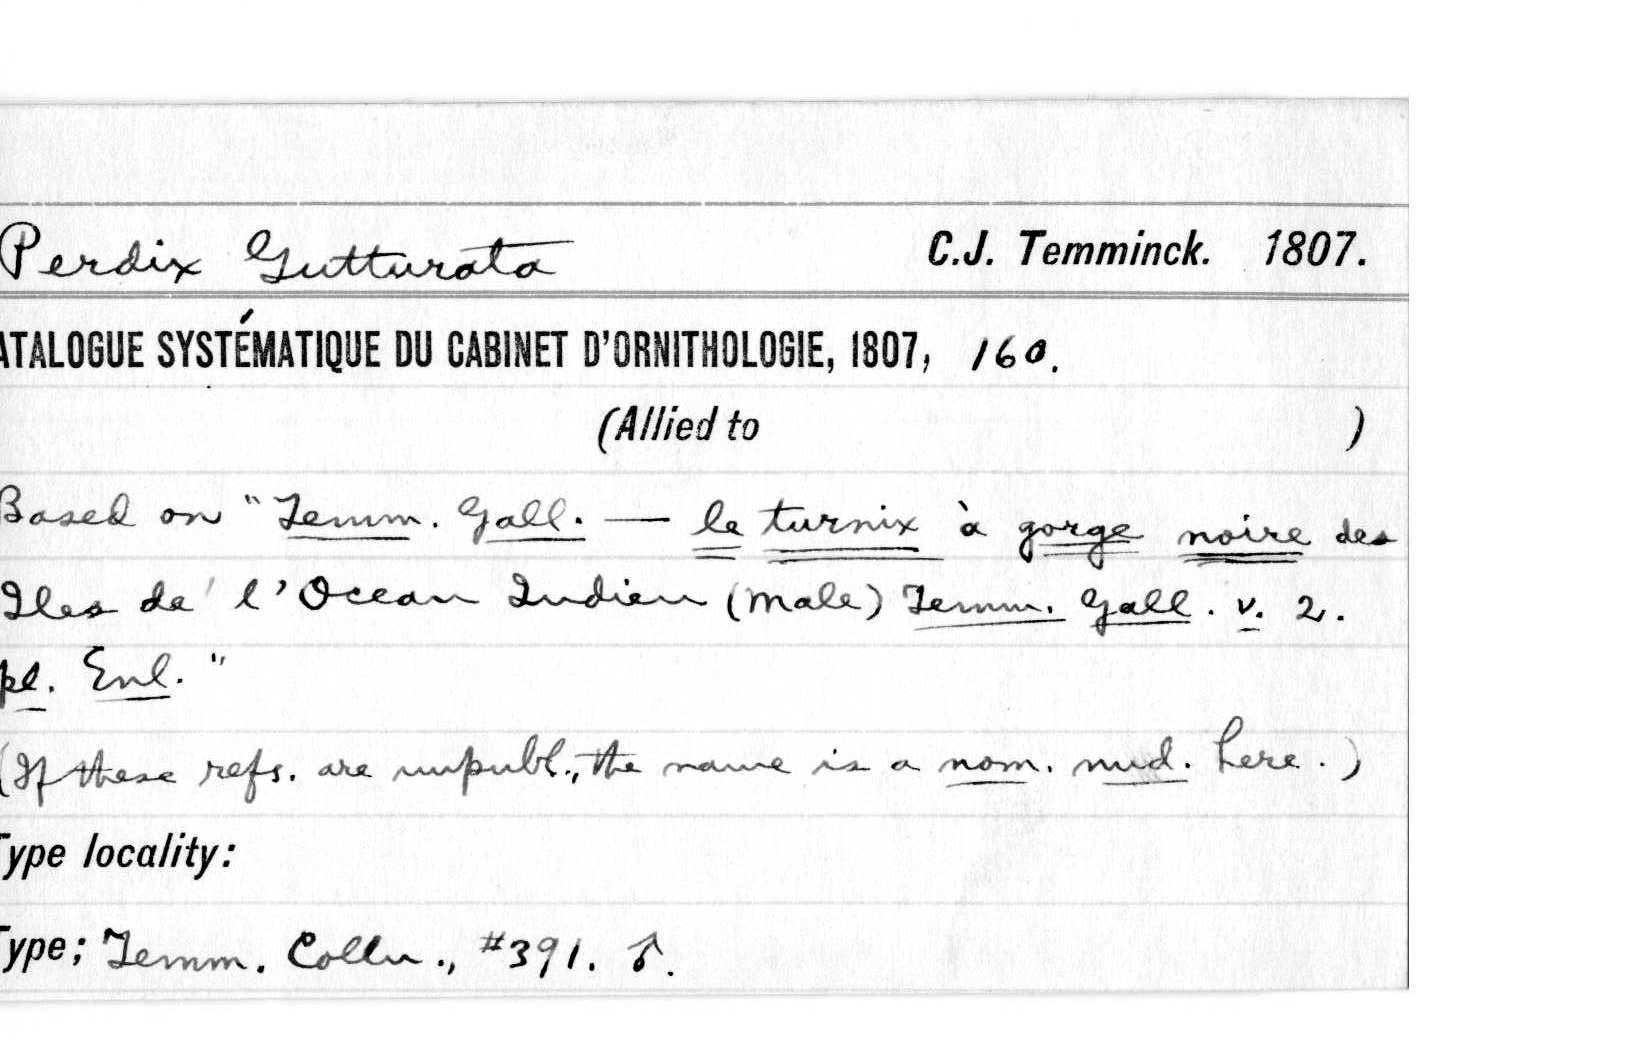 Perdix Gutturata C.J. Temminck. 1807.
ATALOGUE SYSTÉMATIQUE DU CABINET D'ORNITHOLOGIE, 1807, 160.
(Allied to )
Based on "Temm. Gall. — le turnix à gorge noire des
Iles de l'Ocean Indien (male) Temm. Gall. v. 2.
pl. Enl."
(If these refs. are unpubl., the name is a nom. nud. here.)
Type locality:
Type; Temm. Colln., #391. ♂.